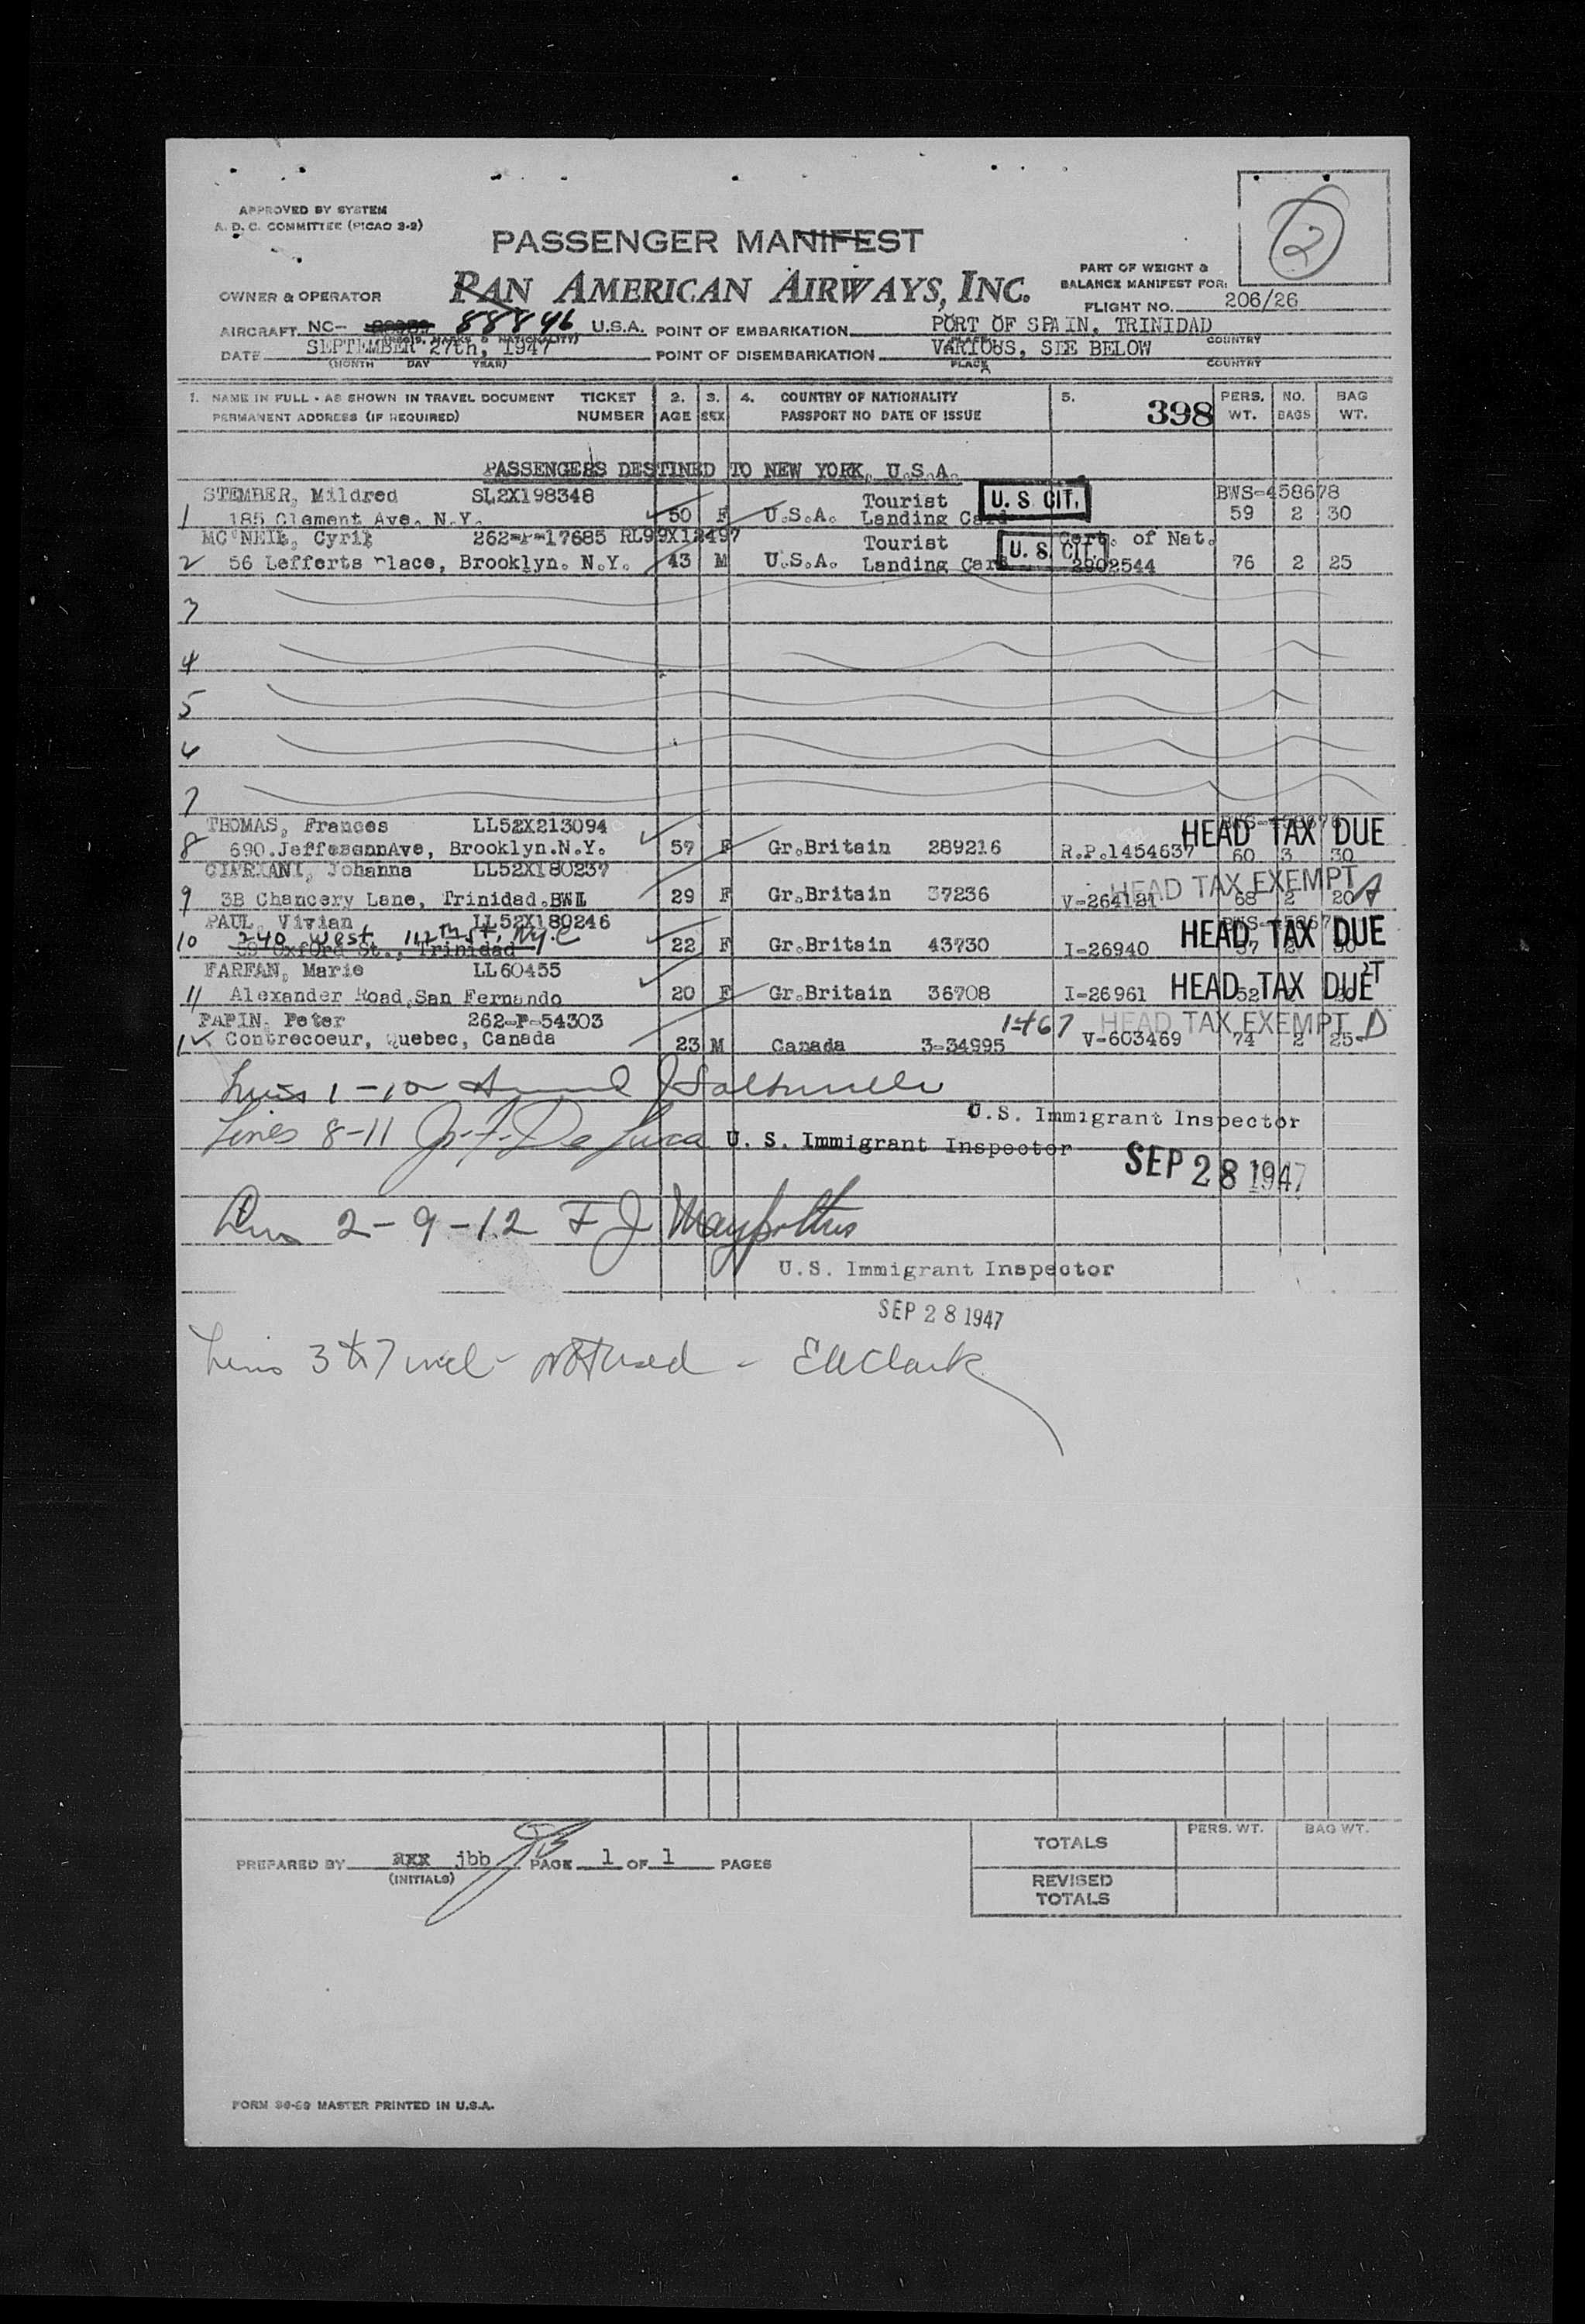 APPROVED BY SYSTEM
A. D. C. COMMITTEE (PICAO 3-2)
PASSENGER MANIFEST
2
PAN AMERICAN AIRWAYS, INC.
PART OF WEIGHT &
BALANCE MANIFEST FOR:
OWNER & OPERATOR
FLIGHT NO. 206/26
AIRCRAFT NC- 88846 U.S.A. POINT OF EMBARKATION PORT OF SPAIN, TRINIDAD
DATE SEPTEMBER 27th, 1947 POINT OF DISEMBARKATION VARIOUS, SEE BELOW
(MONTH DAY YEAR) PLACE COUNTRY
1. NAME IN FULL - AS SHOWN IN TRAVEL DOCUMENT TICKET 2. 3. 4. COUNTRY OF NATIONALITY 5. PERS. NO. BAG
PERMANENT ADDRESS (IF REQUIRED) NUMBER AGE SEX PASSPORT NO DATE OF ISSUE 398 WT. BAGS WT.
PASSENGERS DESTINED TO NEW YORK, U.S.A.
STEMBER, Mildred SL2X198348 Tourist U. S. CIT. BWS-458678
1 185 Clement Ave. N.Y. 50 F U.S.A. Landing Card 59 2 30
MC NEIL, Cyril 262-P-17685 RL99X12497 Tourist U. S. CIT. Cert. of Nat.
2 56 Lefferts Place, Brooklyn. N.Y. 43 M U.S.A. Landing Card 2902544 76 2 25
3
4
5
6
7
THOMAS, Frances LL52X213094 HEAD TAX DUE
8 690.JeffesonnAve, Brooklyn.N.Y. 57 F Gr.Britain 289216 R.P.1454637 60 3 30
CIPRIANI, Johanna LL52X180237 HEAD TAX EXEMPT A
9 3B Chancery Lane, Trinidad.BWI 29 F Gr.Britain 37236 V-264121 68 2 20
PAUL, Vivian LL52X180246 HEAD TAX DUE
240 West 112th St, N.Y.C
10 39 Oxford St., Trinidad 22 F Gr.Britain 43730 I-26940 57 2 30
FARFAN, Marie LL60455 HEAD TAX DUE
11 Alexander Road,San Fernando 20 F Gr.Britain 36708 I-26961 52
PAPIN, Peter 262-P-54303 HEAD TAX EXEMPT D
1 Contrecoeur, Quebec, Canada 23 M Canada 3-34995 V-603469 74 2 25
Lines 1-10
U.S. Immigrant Inspector
Lines 8-11 J. F. De Luca U. S. Immigrant Inspector
SEP 28 1947
2-9-12 F J
U.S. Immigrant Inspector
SEP 28 1947
Lines 3 to 7 incl - not used - EW Clark
PREPARED BY jbb PAGE 1 OF 1 PAGES
(INITIALS)
PERS. WT. BAG WT.
TOTALS
REVISED
TOTALS
FORM MASTER PRINTED IN U.S.A.